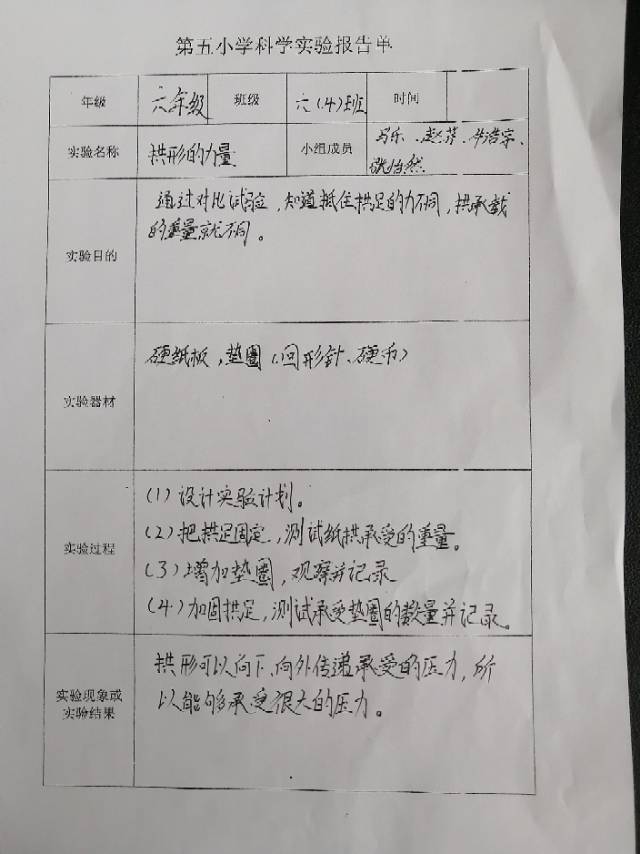 第五小学科学实验报告单
年级 六年级 班级 六(4)班 时间
实验名称 拱形的力量 小组成员 马乐、赵芹、牛浩宗、
怡然
实验目的 通过对比试验,知道抵住拱足的力不同,拱承载
的重量就不同。
实验器材 硬纸板,垫圈(回形针、硬币)
实验过程 (1)设计实验计划。
(2)把拱足固定,测试纸拱承受的重量。
(3)增加垫圈,观察并记录
(4)加固拱足,测试承受垫圈的数量并记录。
实验现象或
实验结果 拱形可以向下、向外传递承受的压力,所
以能够承受很大的压力。